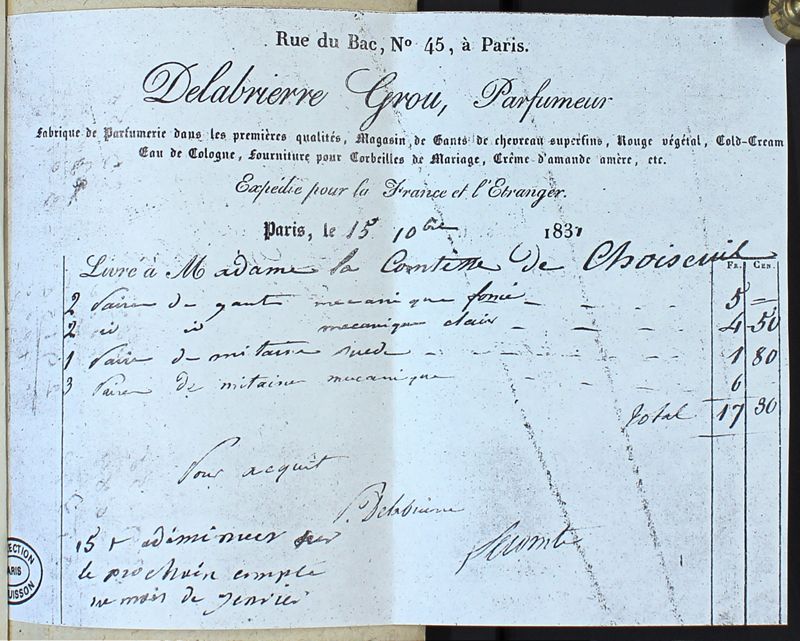 Rue du Bac, No 45, à Paris.
Delabrierre Grou, Parfumeur
Fabrique de Parfumerie dans les premières qualités, Magasin de Gants de chevreau superfins, Rouge végétal, Cold-Cream
Eau de Cologne, Fourniture pour Corbeilles de Mariage, Crême d'amande amère, etc.
Expédie pour la France et l'Etranger.
Paris, le 15 10bre 1837
Livré à Madame la Comtesse de Choiseuil Fr. Cen.
2 Paire de gant mecanique foncé 5 =
2 id id mecanique clair 4 50
1 Paire de mitaine suede 1 80
3 Paire de mitaine mecanique 6
Total 17 30
Pour acquit
P. Delabrierre
15 adéminuer sur
le prochain compte
au mois de Janvier
Lecomte
PARIS